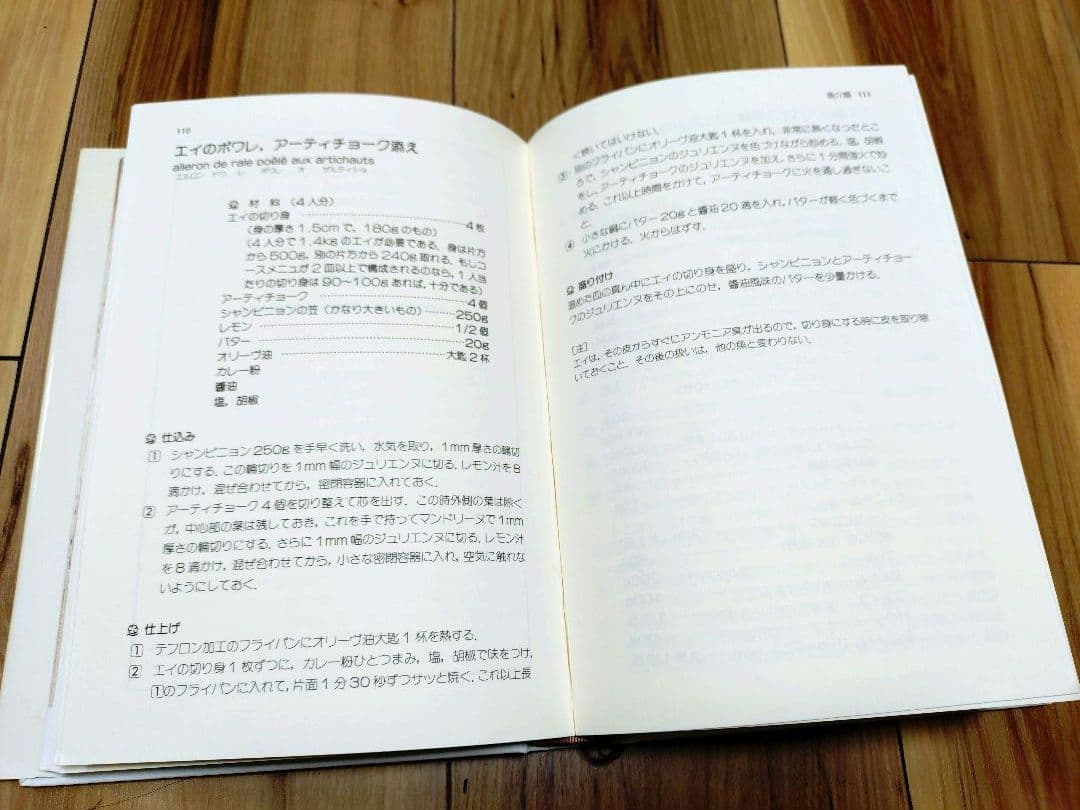 110
エイのポワレ、アーティチョーク添え
aileron de raie poêlé aux artichauts
エルロン ドゥ レ ポワレ オ ザルティショ
材 料（4人分）
エイの切り身 4枚
（身の厚さ1.5cmで，180gのもの）
（4人分で1.4kgのエイが必要である．身は片方
から500g，別の片方から240g取れる．もしコ
ースメニュが2皿以上で構成されるのなら，1人当
たりの切り身は90〜100gあれば，十分である）
アーティチョーク 4個
シャンピニョンの笠（かなり大きいもの） 250g
レモン 1/2個
バター 20g
オリーヴ油 大匙2杯
カレー粉
醬油
塩，胡椒
仕込み
1 シャンピニョン250gを手早く洗い，水気を取り，1mm厚さの輪切
りにする．この輪切りを1mm幅のジュリエンヌに切る．レモン汁を8
滴かけ，混ぜ合わせてから，密閉容器に入れておく．
2 アーティチョーク4個を切り整えて芯を出す．この時外側の葉は除く
が，中心部の葉は残しておき，これを手で持ってマンドリーヌで1mm
厚さの輪切りにする．さらに1mm幅のジュリエンヌに切る．レモン汁
を8滴かけ，混ぜ合わせてから，小さな密閉容器に入れ，空気に触れな
いようにしておく．
仕上げ
1 テフロン加工のフライパンにオリーヴ油大匙1杯を熱する．
2 エイの切り身1枚ずつに，カレー粉ひとつまみ，塩，胡椒で味をつけ，
1のフライパンに入れて，片面1分30秒ずつサッと焼く．これ以上長
魚介類 111
く焼いてはいけない．
3 別のフライパンにオリーヴ油大匙1杯を入れ，非常に熱くなったとこ
ろで，シャンピニョンのジュリエンヌを色づけながら炒める．塩，胡椒
をし，アーティチョークのジュリエンヌを加え，さらに1分間強火で炒
める．これ以上時間をかけて，アーティチョークに火を通し過ぎないこ
と．
4 小さな鍋にバター20gと醬油20滴を入れ，バターが軽く色づくまで
火にかける．火からはずす．
盛り付け
温めた皿の真ん中にエイの切り身を盛り，シャンピニョンとアーティチョー
クのジュリエンヌをその上にのせ，醬油風味のバターを少量かける．
［注］
エイは，その皮からすぐにアンモニア臭が出るので，切り身にする時に皮を取り除
いておくこと．その後の扱いは，他の魚と変わりない．